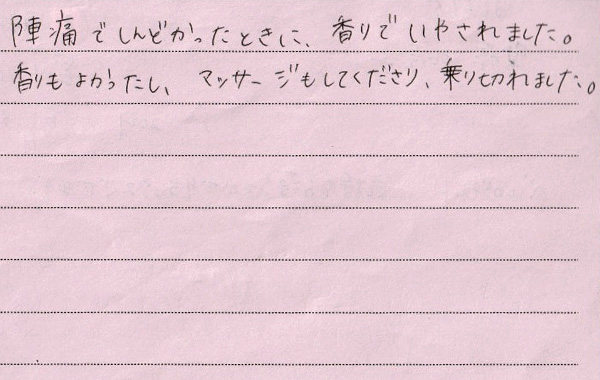 陣痛でしんどかったときに、香りでいやされました。
香りもよかったし、マッサージもしてくださり、乗り切れました。